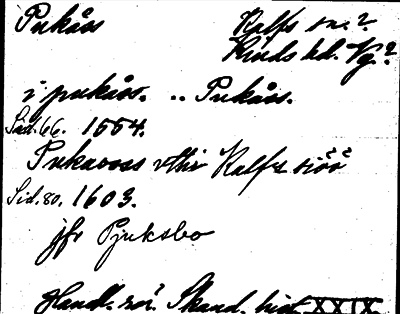 Pukåss Kalfs sn.?
Kinds hd. Vg?
i pukåss. .. Pukåss.
Sid. 66. 1554.
Pukaoss vthi Kalfs siöö
Sid. 80. 1603.
jfr Pjuksbo
Handl. rör. Skand. hist XXIX